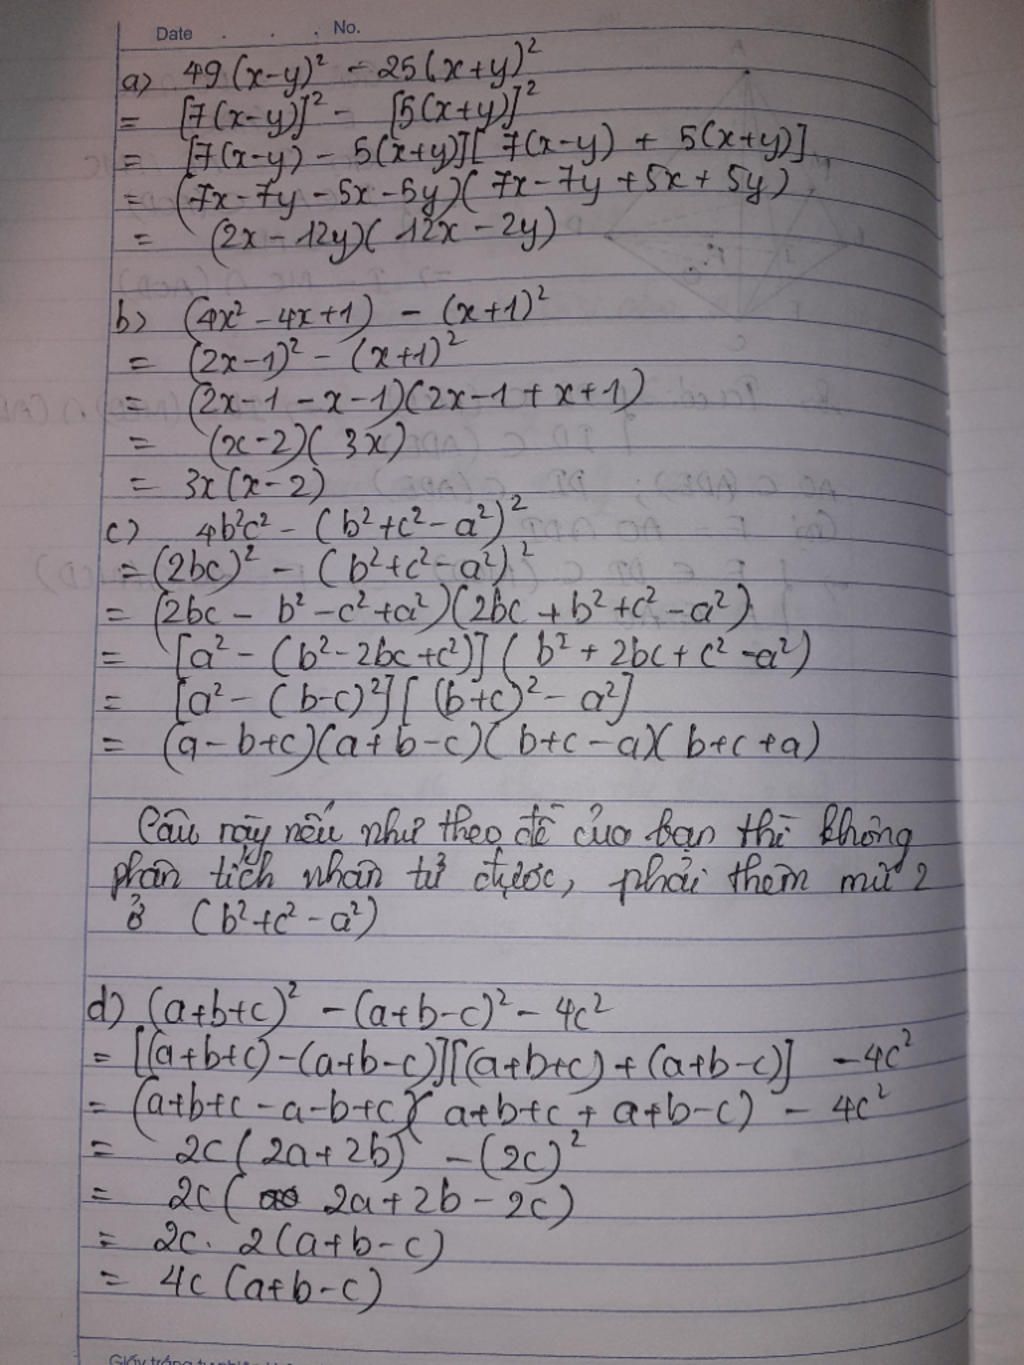 Date . . . No.
a) 49(x-y)² - 25(x+y)²
= [7(x-y)]² - [5(x+y)]²
= [7(x-y) - 5(x+y)][7(x-y) + 5(x+y)]
= (7x-7y-5x-5y)(7x-7y+5x+5y)
= (2x-12y)(12x-2y)
b) (4x²-4x+1) - (x+1)²
= (2x-1)² - (x+1)²
= (2x-1-x-1)(2x-1+x+1)
= (x-2)(3x)
= 3x(x-2)
c) 4b²c² - (b²+c²-a²)²
= (2bc)² - (b²+c²-a²)²
= (2bc - b²-c²+a²)(2bc+b²+c²-a²)
= [a²-(b²-2bc+c²)](b²+2bc+c²-a²)
= [a²-(b-c)²][(b+c)²-a²]
= (a-b+c)(a+b-c)(b+c-a)(b+c+a)
Câu này nếu như theo đề của bạn thì không
phân tích nhân tử được, phải thêm mũ 2
ở (b²+c²-a²)
d) (a+b+c)² - (a+b-c)² - 4c²
= [(a+b+c)-(a+b-c)][(a+b+c)+(a+b-c)] - 4c²
= (a+b+c-a-b+c)(a+b+c+a+b-c) - 4c²
= 2c(2a+2b) - (2c)²
= 2c(2a+2b-2c)
= 2c. 2(a+b-c)
= 4c(a+b-c)